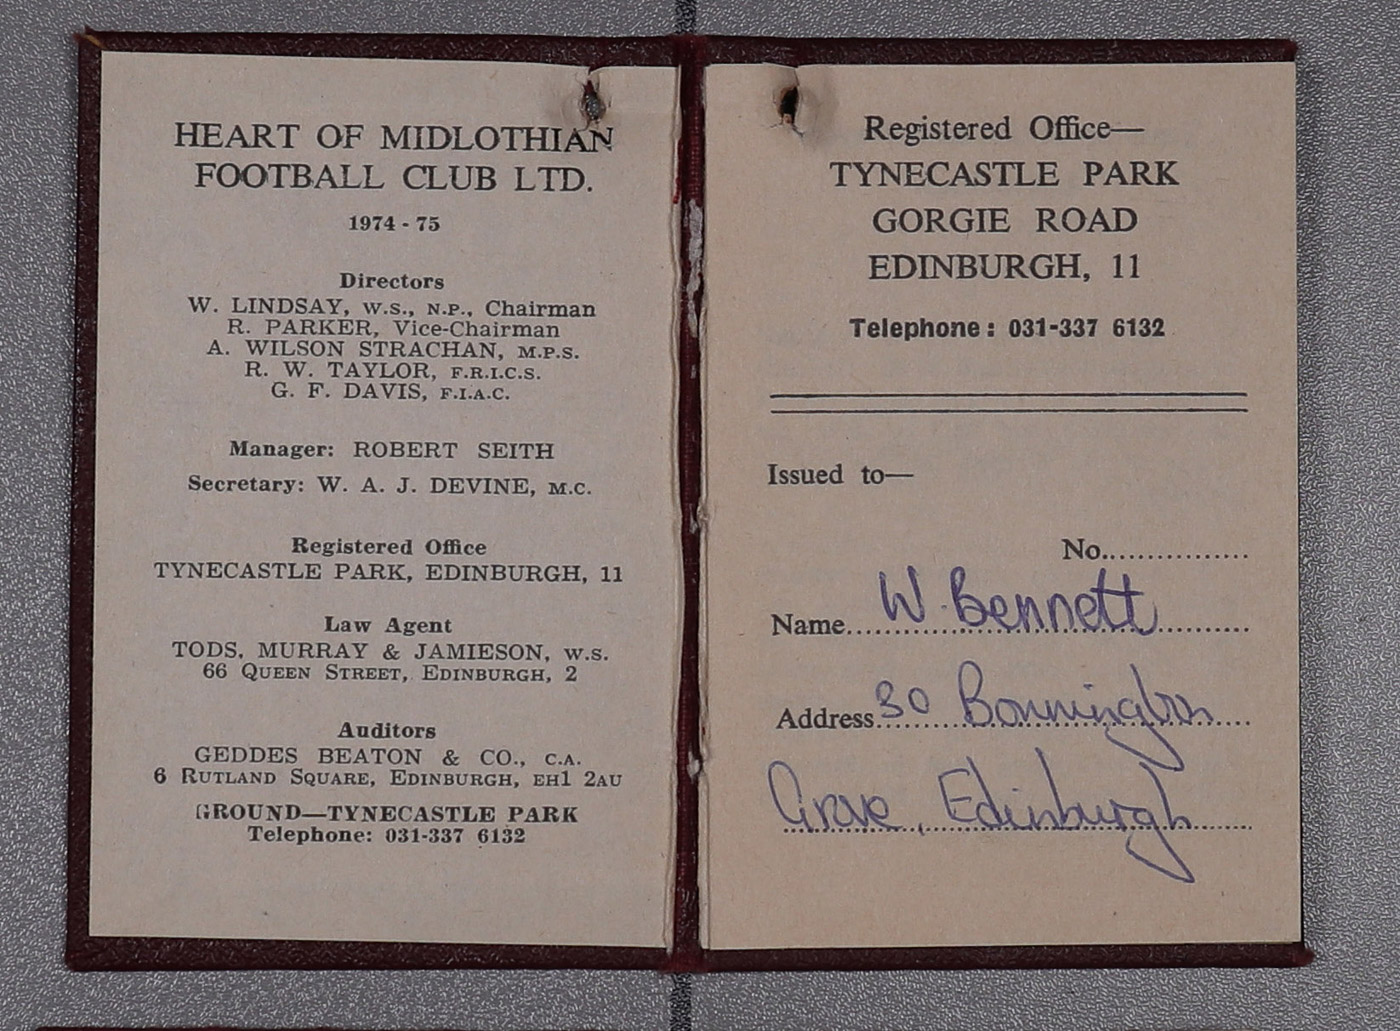 HEART OF MIDLOTHIAN
FOOTBALL CLUB LTD.
1974 - 75
Directors
W. LINDSAY, W.S., N.P., Chairman
R. PARKER, Vice-Chairman
A. WILSON STRACHAN, M.P.S.
R. W. TAYLOR, F.R.I.C.S.
G. F. DAVIS, F.I.A.C.
Manager: ROBERT SEITH
Secretary: W. A. J. DEVINE, M.C.
Registered Office
TYNECASTLE PARK, EDINBURGH, 11
Law Agent
TODS, MURRAY & JAMIESON, W.S.
66 QUEEN STREET, EDINBURGH, 2
Auditors
GEDDES BEATON & CO., C.A.
6 RUTLAND SQUARE, EDINBURGH, EH1 2AU
GROUND—TYNECASTLE PARK
Telephone: 031-337 6132
Registered Office—
TYNECASTLE PARK
GORGIE ROAD
EDINBURGH, 11
Telephone: 031-337 6132
Issued to—
No................
Name W. Bennett
Address 30 Bonnington
Grove, Edinburgh